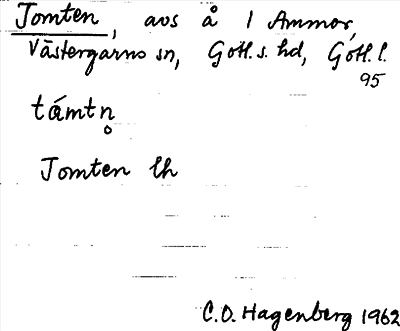 Tomten, avs å 1 Ammor,
Västergarns sn, Gotl. s. hd, Gotl. l.
95
támtn̥
Tomten lh
C.O. Hagenberg 1962